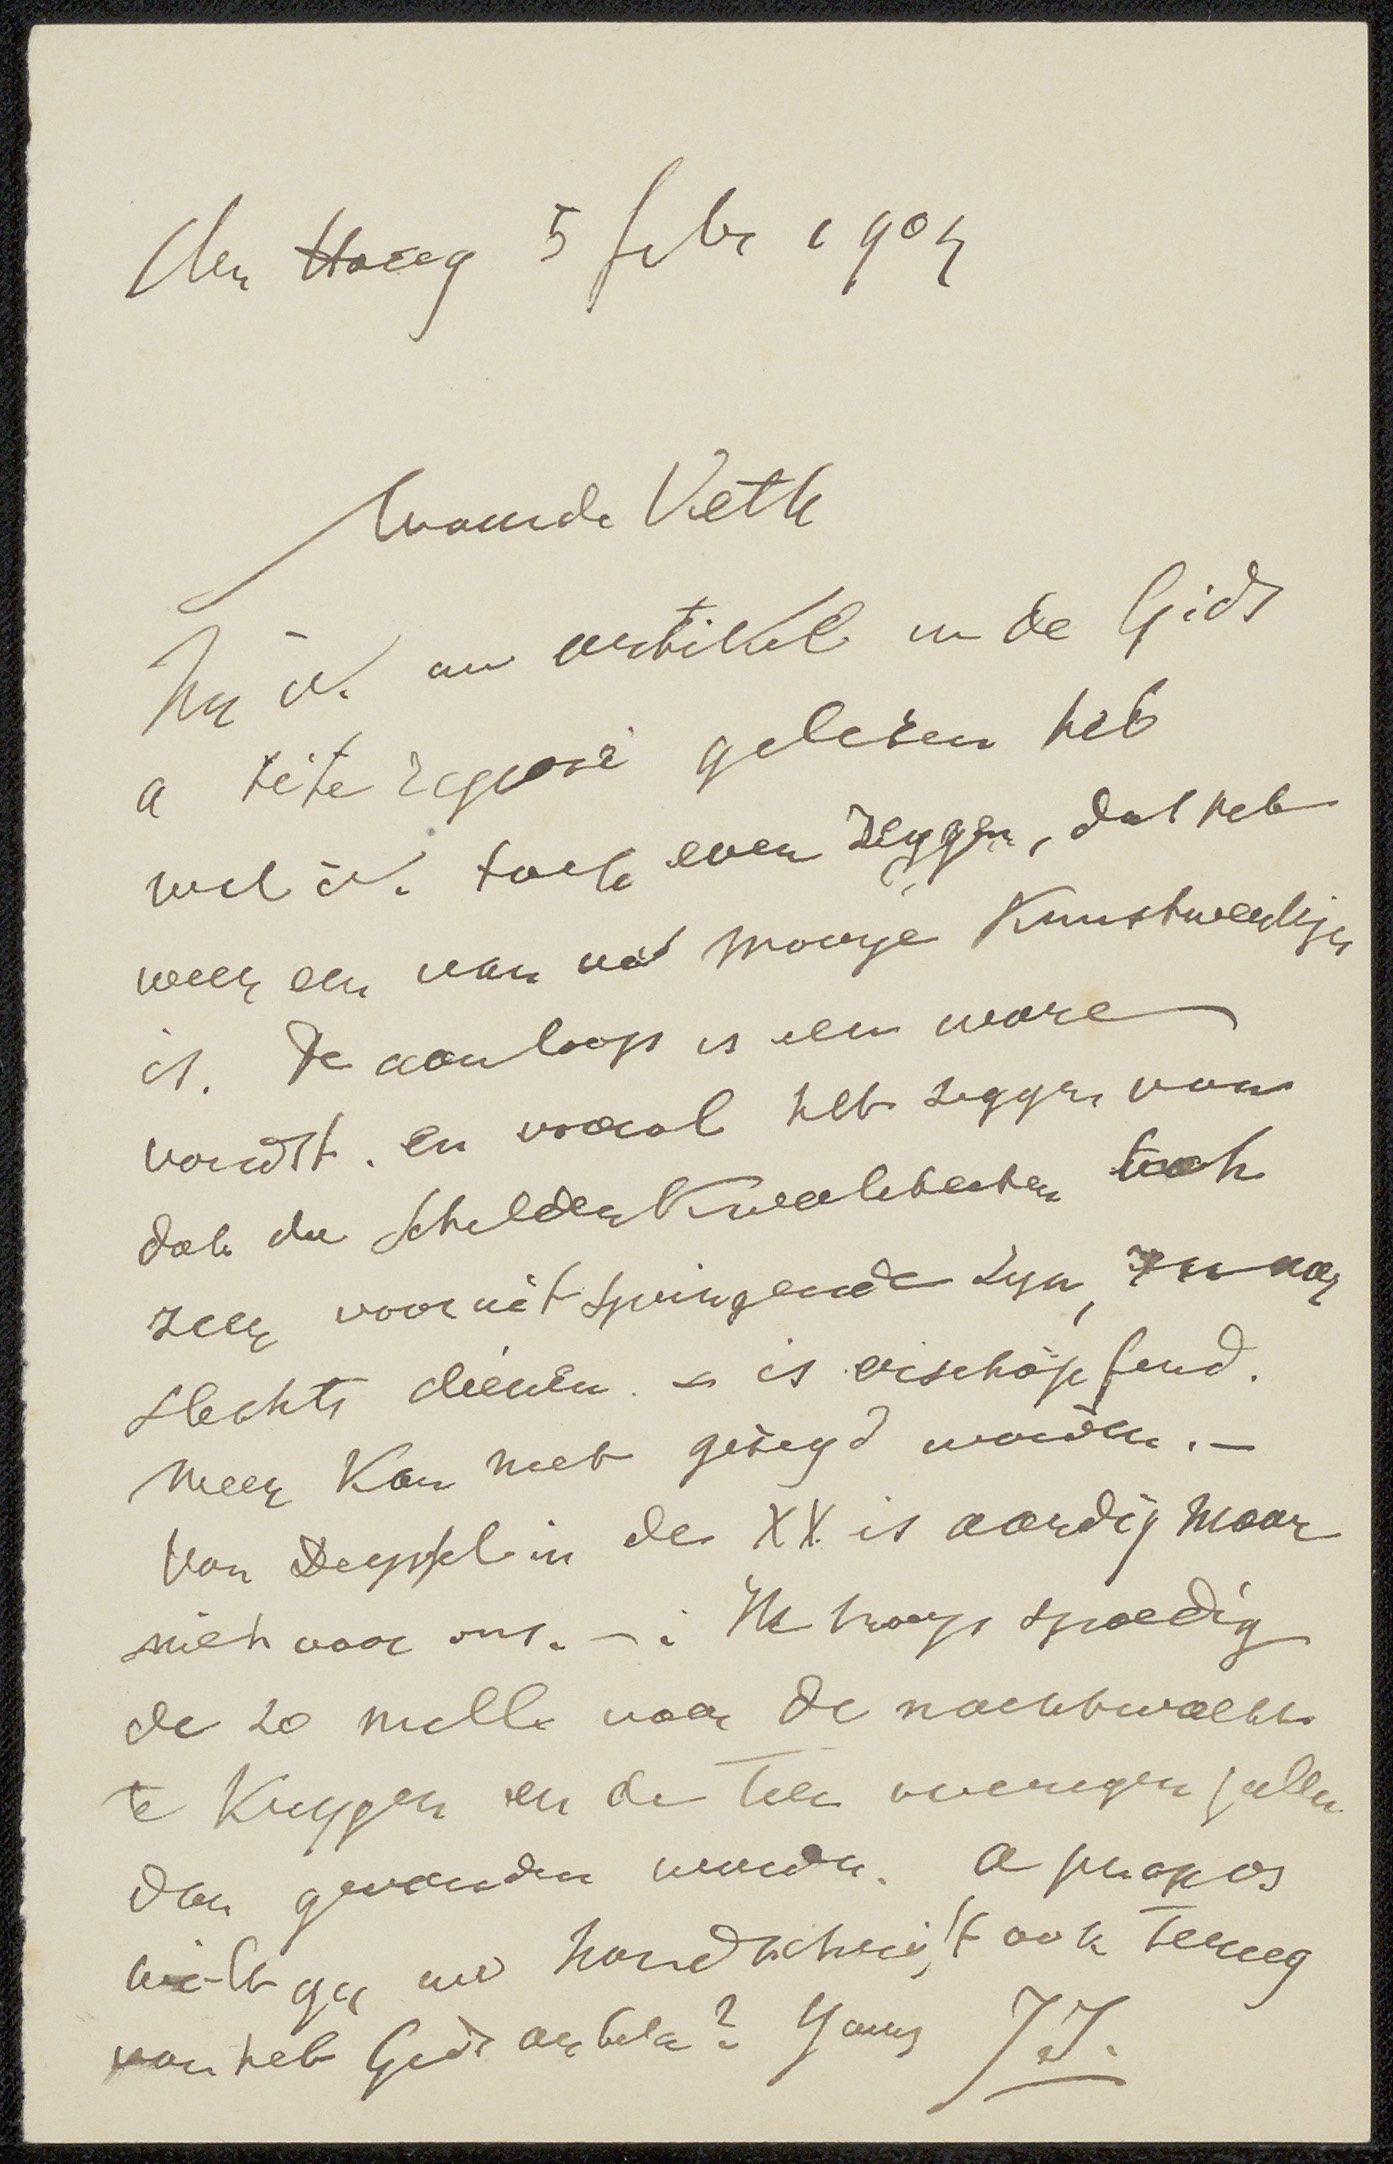 den Haag 5 febr 1904
Waarde Veth
Nu ik uw artikel in de Gids
a tête reposé gelesen heb
wil ik toch even zeggen, dat het
weer een van uw mooije Kunstwerkjes
is. De aanloop is een ware
vondst. en vooral het zeggen van
dat die Schilder Kwaliteiten toch
zeer vooruitspringende zyn,
slechts dienen. – is erschöpfend.
Meer Kan niet gezegd worden. –
Van Deyssel in de XX is aardig maar
niet voor ons. – . Ik hoop spoedig
de 20 mille voor de nachtwacht
te Krygen en de tien overigen zullen
dan gevonden worden. A propos
wilt gy uw handschrift ook terug
van het Gids artikel? Yours JJ.